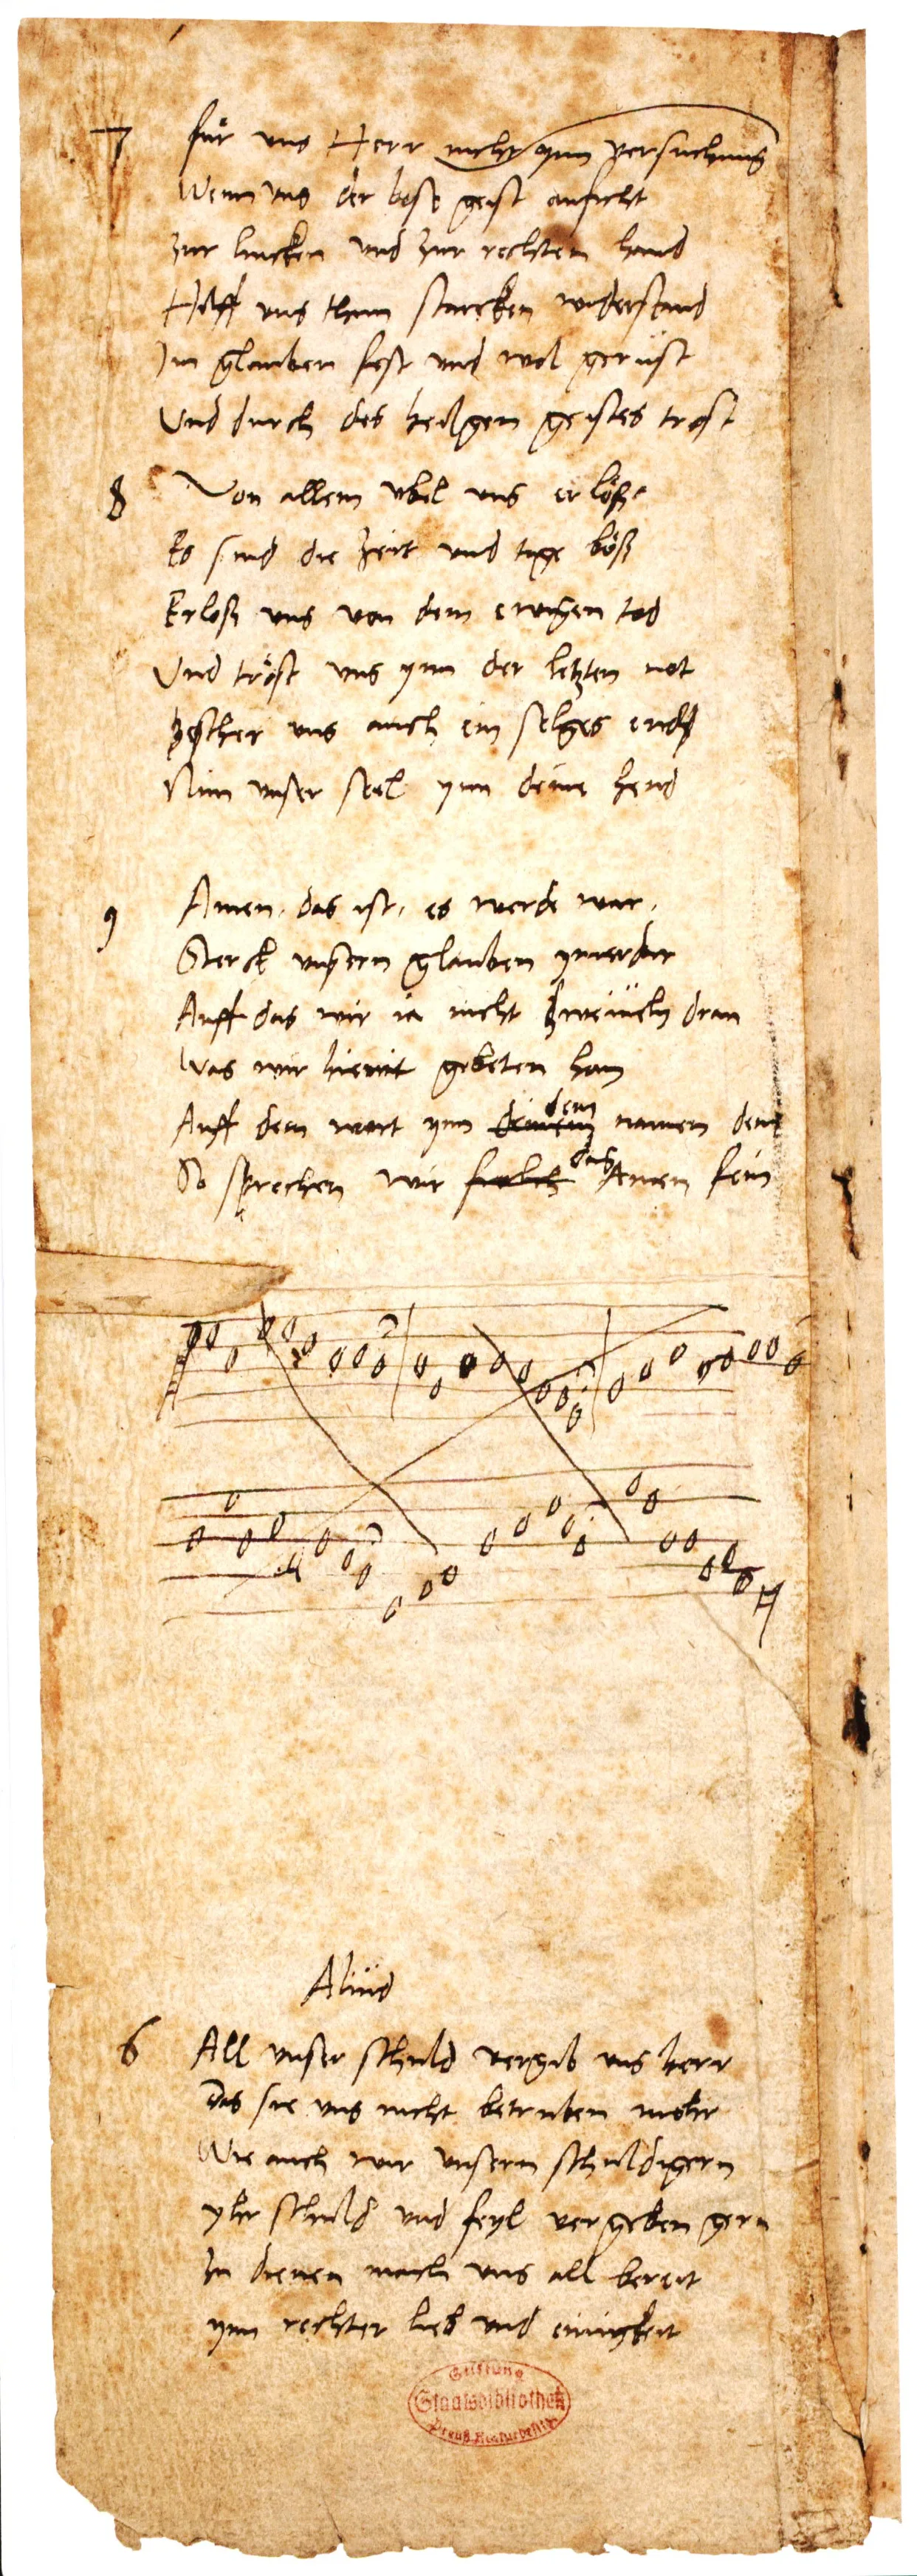 7 fur uns Herr nicht ynn versuchung
Wenn uns der bose geist anficht
zur lincken und zur rechten hand
Hilff uns thun starcken widerstand
Im glauben fest und wol gerüst
Und durch des heilgen geistes trost
8 Von allem ubel uns erlös
Es sind die zeit und tage bös
Erlos uns von dem ewigen tod
Und tröst uns ynn der letzten not
bescher uns auch ein seliges end
Nim unser seel ynn deine hend
9 Amen, das ist, es werde war,
Sterck unsern glauben ymerdar
Auff das wir ia nicht zweiveln dran
Was wir hiemit gebeten han
Auff dein wort ynn dem namen dein
So sprechen wir das Amen fein
Aliud
6 All unser schuld vergib uns herr
Das sie uns nicht betruben mehr
Wie auch wir unsern schuldigern
yhr schuld und feyl vergeben gern
zu dienen mach uns all bereit
ynn rechter lieb und einigkeit
Stiftung
Staatsbibliothek
Preuß. Kulturbesitz